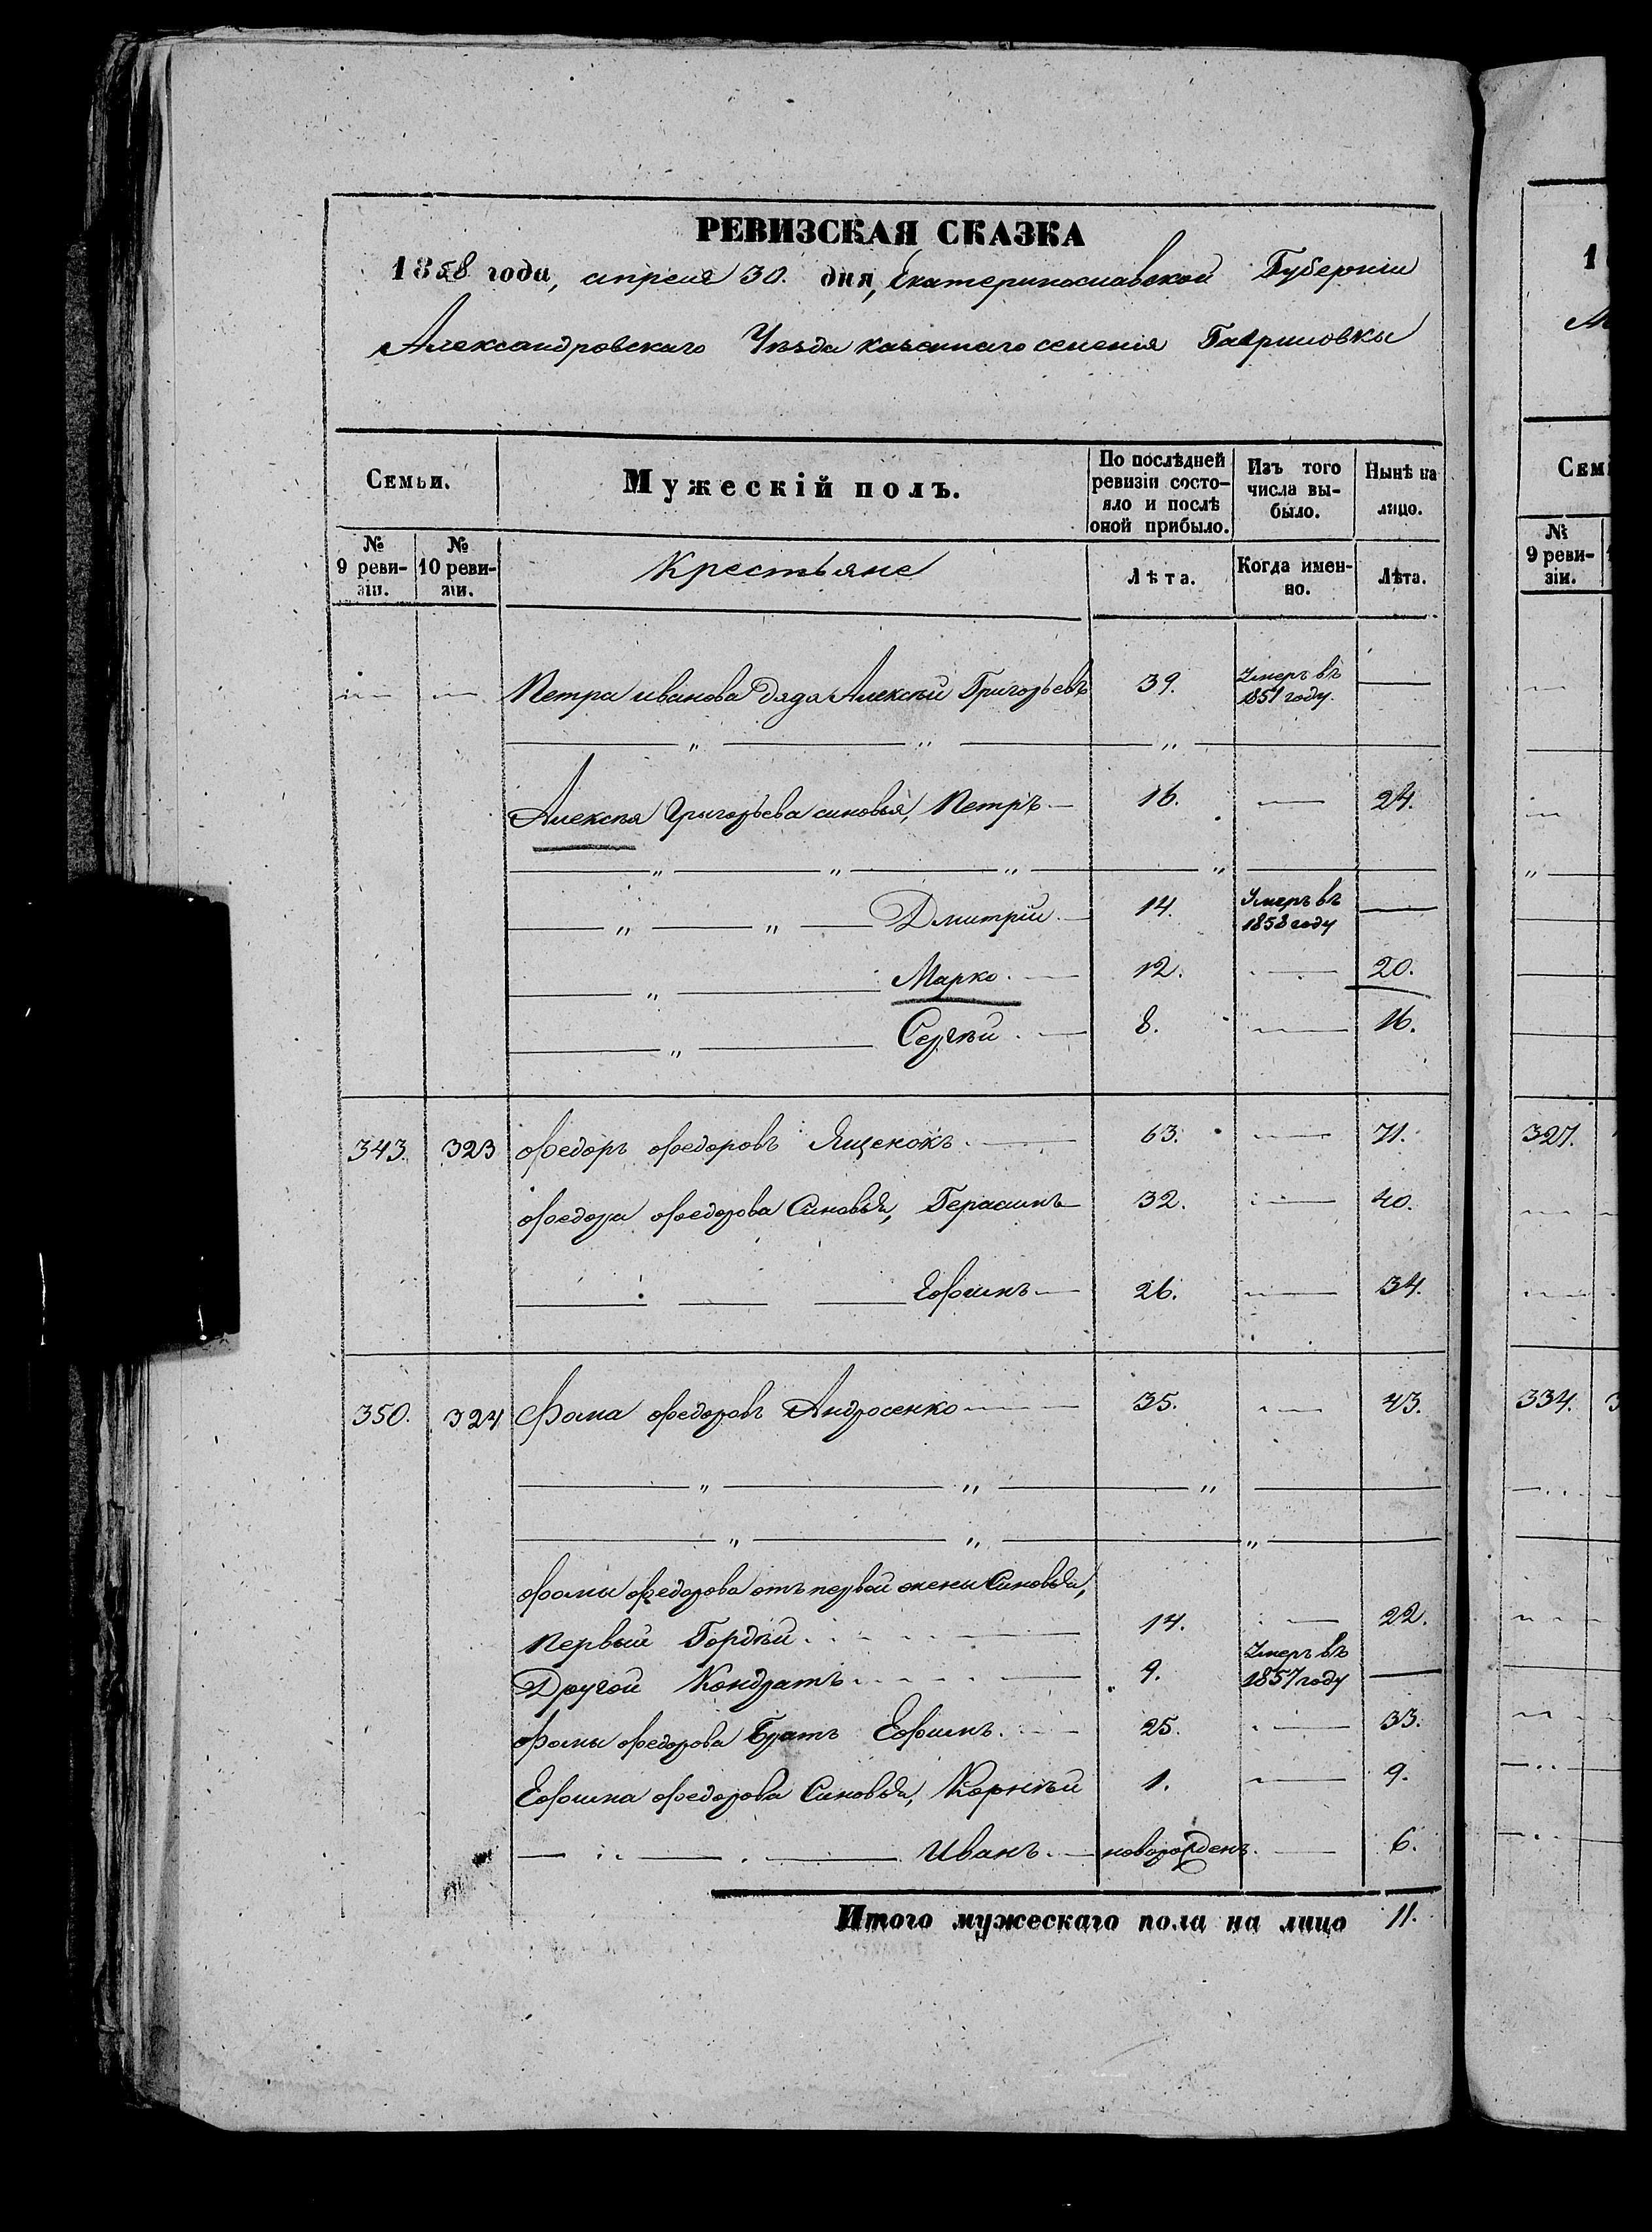 РЕВИЗСКАЯ СКАЗКА
1858 года, апреля 30. дня, Екатеринославской Губерніи
Александровскаго Уѣзда казеннаго селенія Гавриловки
Семьи. Мужескій полъ. По послѣдней ревизіи состояло и послѣ оной прибыло. Изъ того числа выбыло. Нынѣ на лицо.
№ 9 реви-зіи. № 10 реви-зіи. Крестьяне Лѣта. Когда имен-но. Лѣта.
Петра иванова дядя Алексѣй Григорьевъ 39. Умеръ въ 1851 году. —
Алексѣя Григорьева синовья, Петръ — 16. — 24.
Дмитрій. — 14. Умеръ въ 1858 году —
Марко. — 12. — 20.
Сергѣй. — 8. — 16.
343. 323 Федоръ Федоровъ Ященокъ. — 63. — 71.
Федора Федорова Синовья, Герасимъ — 32. — 40.
Ефимъ — 26. — 34.
350. 324 Фома Федоровъ Андросенко — 35. — 43.
Фомы Федорова отъ первой жены Синовья,
Первый Гордѣй. — 14. — 22.
Другой Кондратъ. — 9. Умеръ въ 1857 году —
Фомы Федорова Братъ Ефимъ. — 25. — 33.
Ефима Федорова Синовья, Корнѣй 1. — 9.
Иванъ. — новорожденъ. — 6.
Итого мужескаго пола на лицо 11.
1
Сем
№ 9 реви-зіи.
327.
334. 3